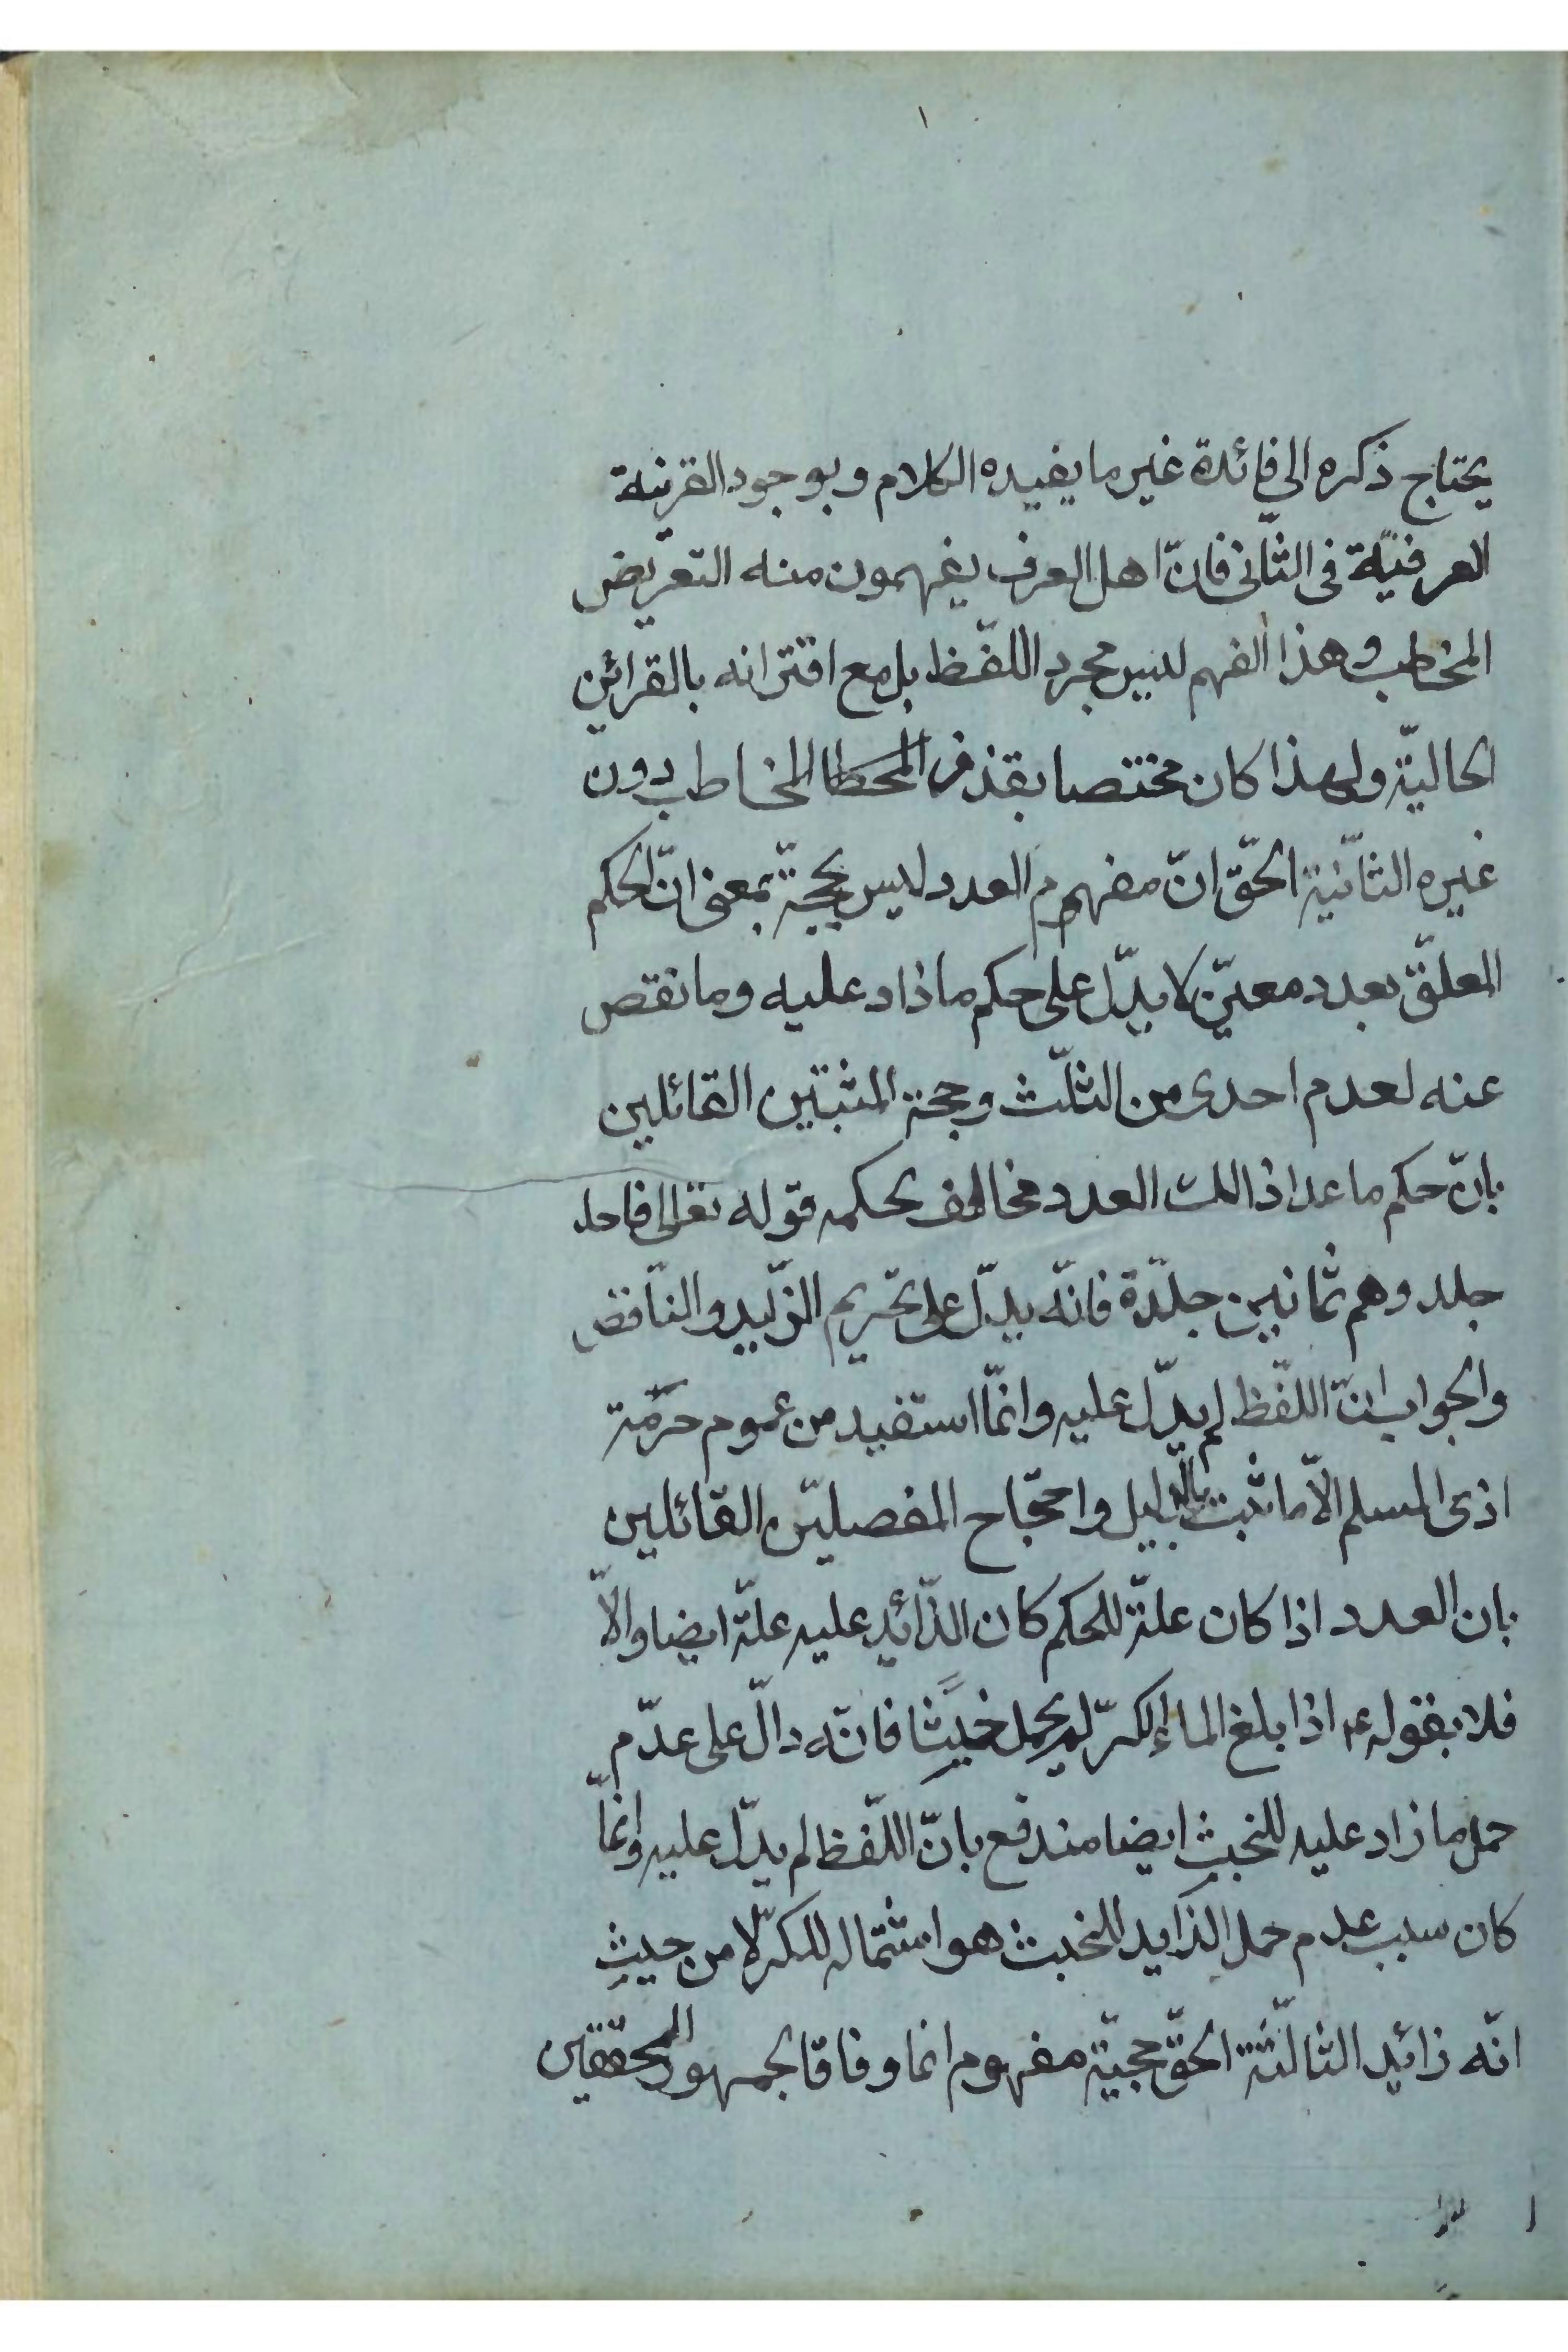 يحتاج ذكره الى فائدة غير ما يفيده الكلام وبوجود القرينة
العرفيّة فى الثّانى فانّ اهل العرف يفهمون منه التعريض
المخاطب وهذا الفهم ليس مجرد اللفّظ بل مع اقترانه بالقرائن
الحاليّة ولهذا كان مختصا بقذف المخاطب دون
غيره الثانّية الحقّ انّ مفهوم العدد ليس بحجّة بمعنى انّ الحكم
المعلّق بعدد معيّن لا يدّل على حكم ما زاد عليه وما نقص
عنه لعدم احدى من الثلّث وحجة المثبتين القائلين
بانّ حكم ما عدا ذالك العدد مخالف بحكمه قوله تعالى فاجلد
جلد وهم ثمانين جلدّة فانّه يدّل على تحريم الزّايد والنّاقص
والجواب انّ اللفّظ لم يدّل عليه وانمّا استفيد من عموم حرمّة
اذى المسلم الاّ ما ثبت بالدليل واحتجّاج المفصليّن القائلين
بان العدد اذا كان علّة للحكم كان الزّائد عليه علّة ايضا والاّ
فلا بقوله ع اذا بلغ الماء الكرّ لم يحمل خبثا فانّه دالّ على عدّم
حمل ما زاد عليه للخبث ايضا مندفع بانّ اللّفظ لم يدّل عليه وانمّا
كان سبب عدم حمل الزّايد للخبث هو اشتماله للكرّ لا من حيث
انّه زائد الثالثّة الحقّ حجيّة مفهوم انما وفاقا لجمهور المحققّين